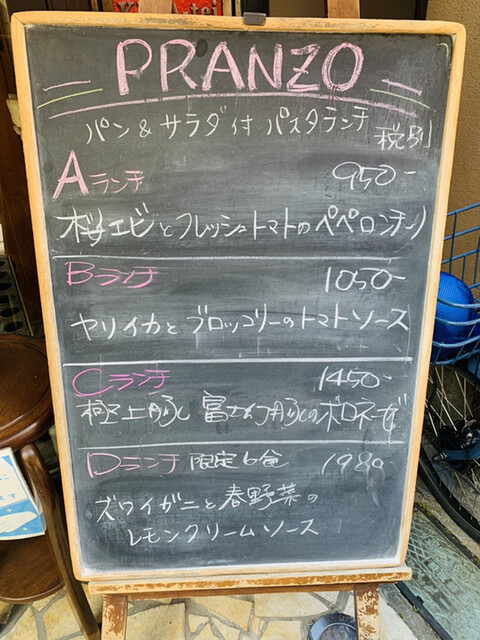 PRANZO
パン&サラダ付 パスタランチ 税別
Aランチ 950-
桜エビとフレッシュトマトのペペロンチーノ
Bランチ 1050-
ヤリイカとブロッコリーのトマトソース
Cランチ 1450-
極上豚 富士幻豚のボロネーゼ
Dランチ 限定6食 1980
ズワイガニと春野菜の
レモンクリームソース